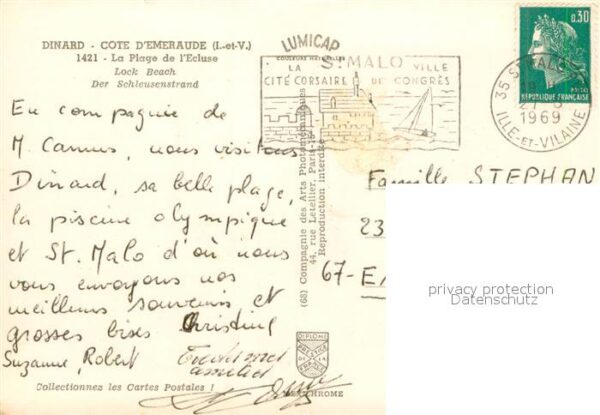 DINARD - COTE D'EMERAUDE (I.-et-V.)
1421 - La Plage de l'Ecluse
Lock Beach
Der Schleusenstrand
En compagnie de
M. Camus, nous visitons
Dinard, sa belle plage,
la piscine olympique
et St. Malo d'où nous
vous envoyons nos
meilleurs souvenirs et
grosses bises Christine
Suzanne, Robert
Collectionnez les Cartes Postales !
LUMICAP
COULEURS NATURELLES
(68) Compagnie des Arts Photomécaniques
44, rue Letellier, Paris-15e
Reproduction interdite
DIPLOME
PRESTIGE
DE LA
FRANCE
MEXICHROME
LA ST MALO VILLE
CITÉ CORSAIRE DE CONGRÈS
35 ST MALO
1969
ILLE-ET-VILAINE
0,30
POSTES
REPUBLIQUE FRANÇAISE
Famille STEPHAN
23
67-E
privacy protection
Datenschutz